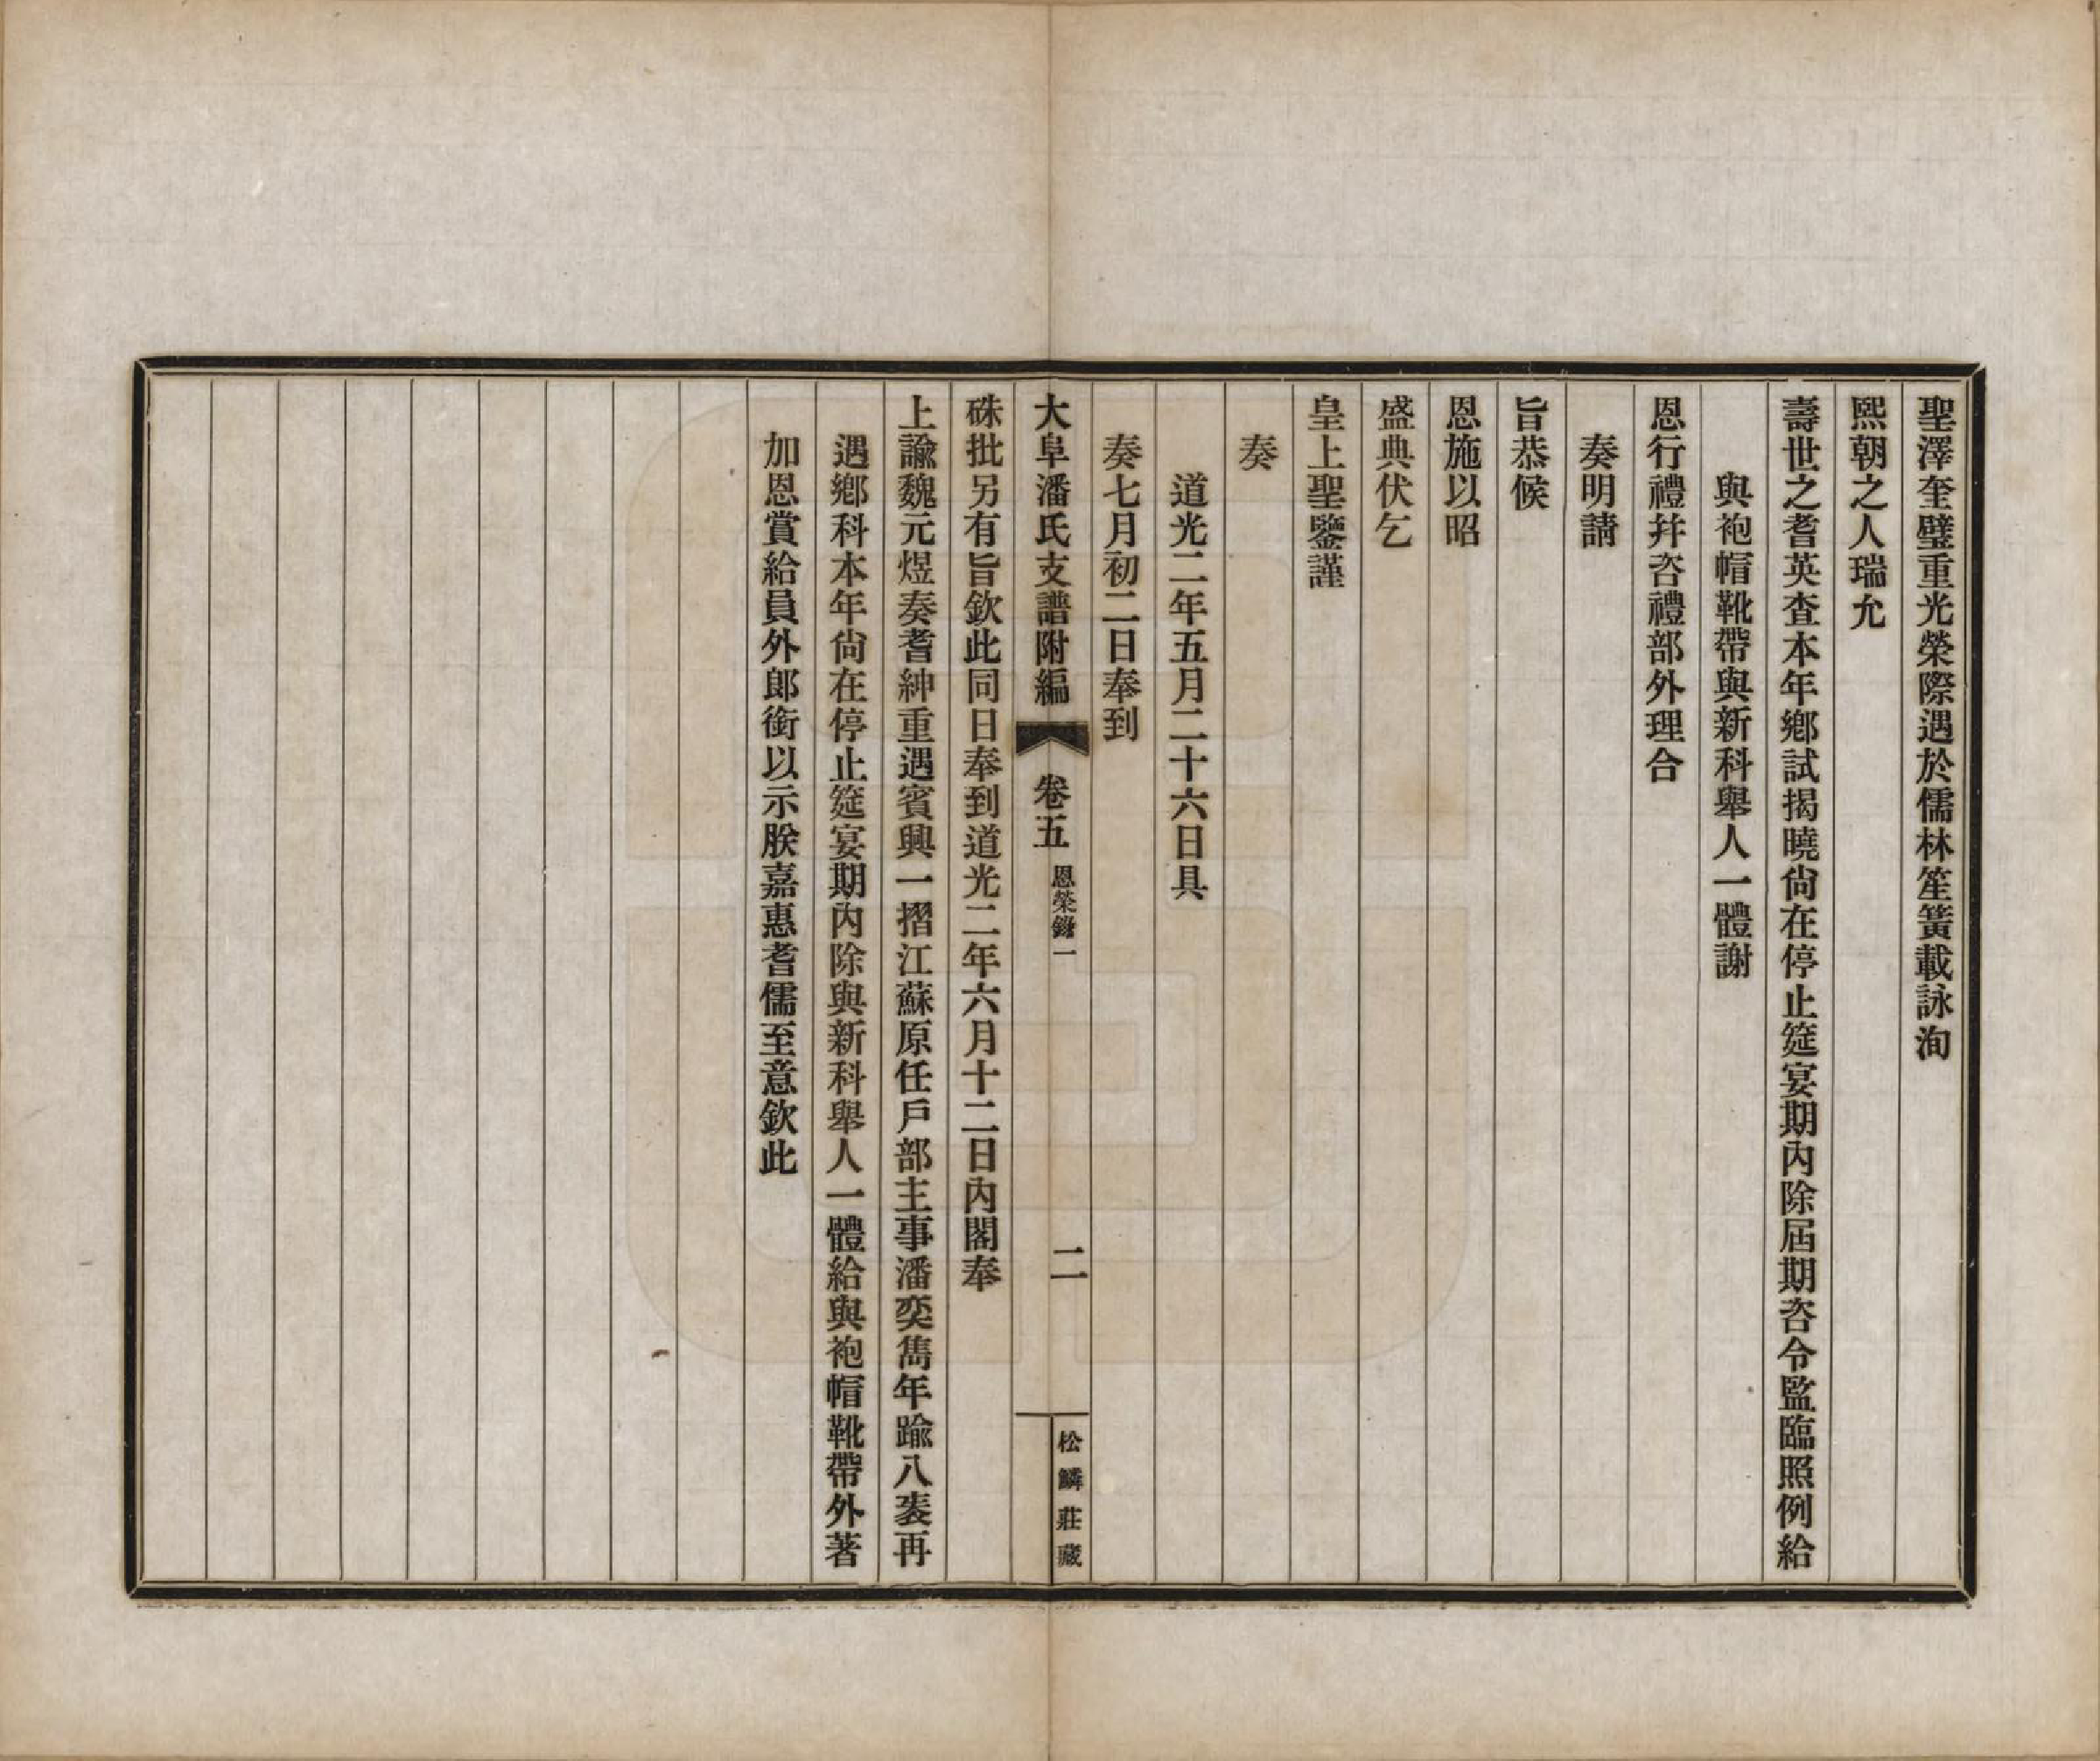 聖澤奎璧重光榮際遇於儒林笙簧載詠洵
熙朝之人瑞允
壽世之耆英查本年鄉試揭曉尙在停止筵宴期內除屆期咨令監臨照例給
與袍帽靴帶與新科舉人一體謝
恩行禮幷咨禮部外理合
奏明請
旨恭候
恩施以昭
盛典伏乞
皇上聖鑒謹
奏
道光二年五月二十六日具
奏七月初二日奉到
大阜潘氏支譜附編 卷五 恩榮錄一 二 松鱗莊藏
硃批另有旨欽此同日奉到道光二年六月十二日內閣奉
上諭魏元煜奏耆紳重遇賓興一摺江蘇原任戶部主事潘奕雋年踰八袠再
遇鄉科本年尙在停止筵宴期內除與新科舉人一體給與袍帽靴帶外著
加恩賞給員外郎銜以示朕嘉惠耆儒至意欽此